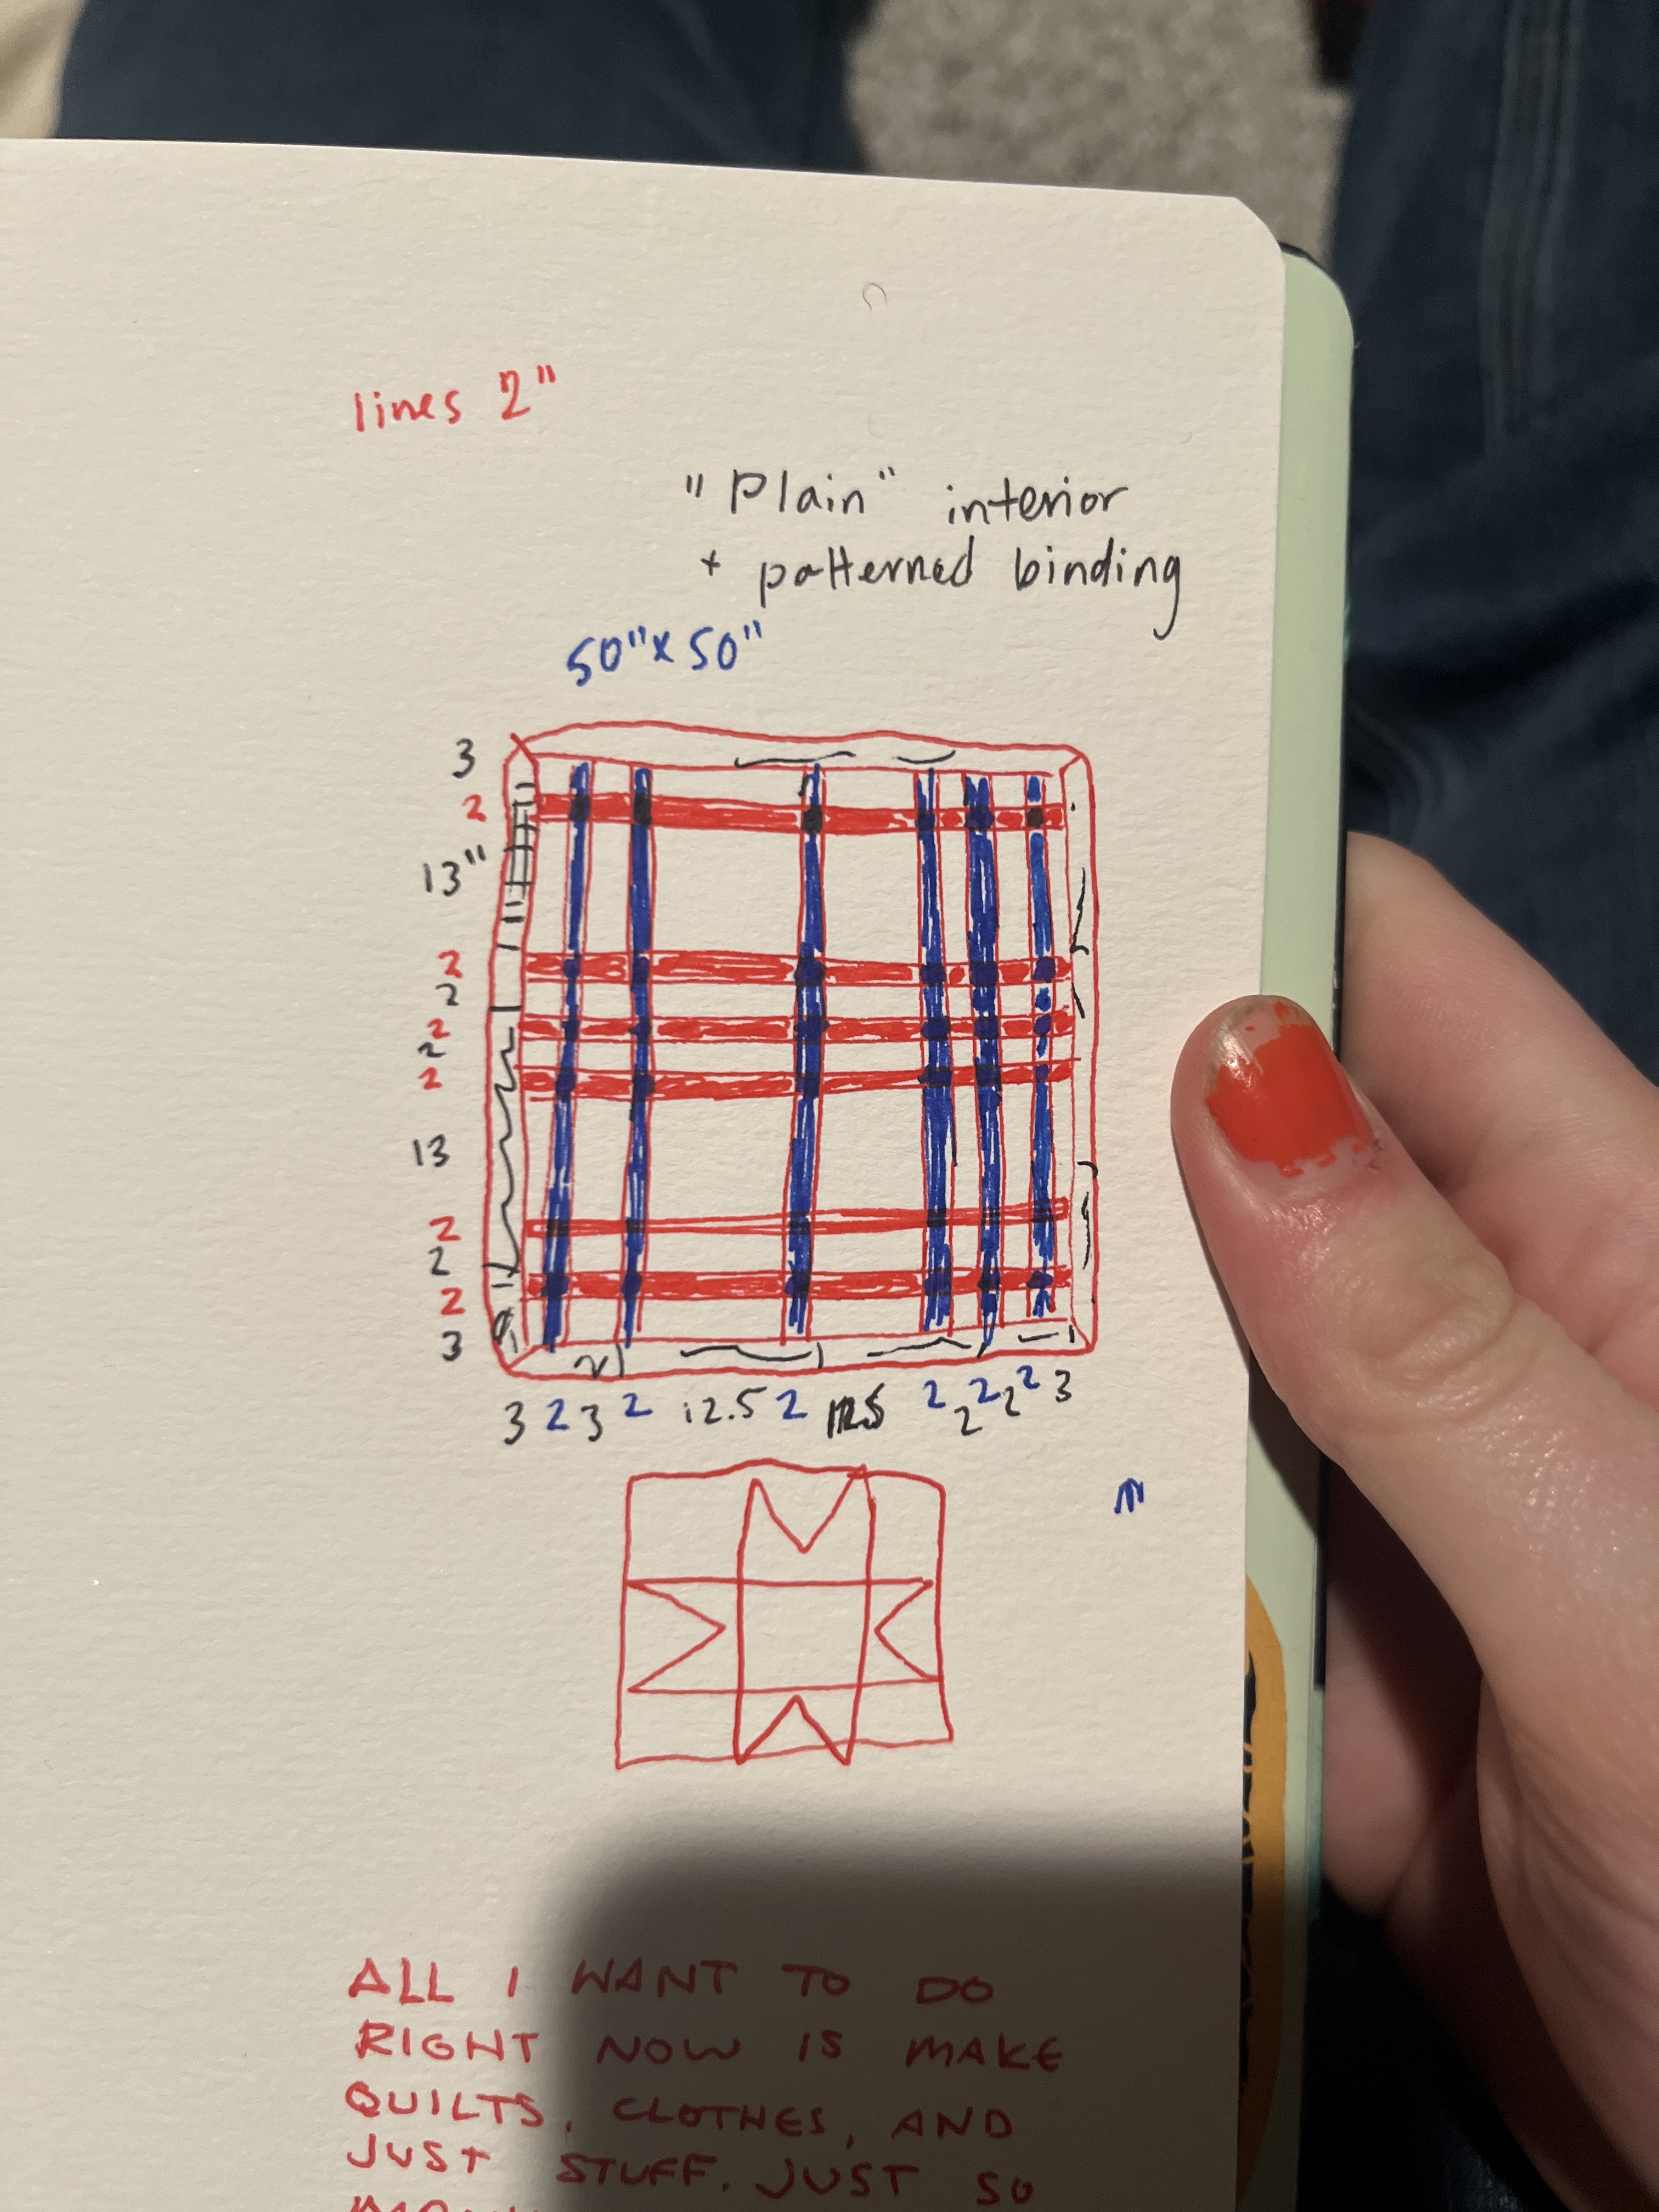 lines 2"
"Plain" interior
+ patterned binding
50"x50"
3
2
13"
2
2
2
2
2
13
2
2
2
3
3 2 3 2 12.5 2 2 2 2 2 2 3
ALL I WANT TO DO
RIGHT NOW IS MAKE
QUILTS, CLOTHES, AND
JUST STUFF. JUST SO